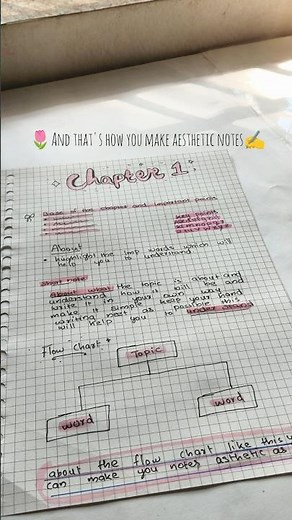 And that's how you make aesthetic notes
Chapter 1
Name of the chapter and important points
key point
About
• highlight the top words which will
help you to understand
Short note
About what the topic is about and
understand how it will be and
write it in your own way and
make it simple keep your hand
writing neat as possible this
will help you to understand
Flow Chart
Topic
word
word
about the flow chart like this
can make you notes asthetic as